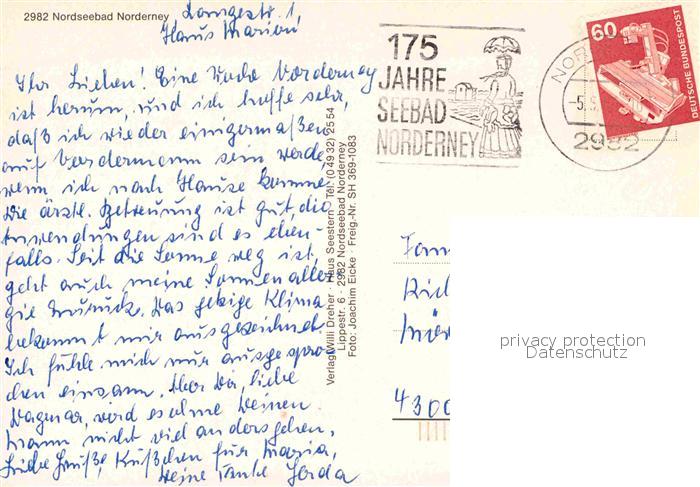 2982 Nordseebad Norderney
Langestr. 1
Haus Marion!
Ihr Lieben! Eine Woche Norderney
ist herum, und ich hoffe sehr,
daß ich wieder einigermaßen
auf Vordermann sein werde,
wenn ich nach Hause komme.
Die ärztl. Betreuung ist gut, die
Anwendungen sind es eben-
falls. Seit die Sonne weg ist,
geht auch meine Sonnenaller-
gie zurück. Das jetzige Klima
bekommt mir ausgezeichnet.
Ich fühle mich nur ausgespro-
chen einsam. Aber Dir, liebe
Dagmar, wird es ohne Deinen
Mann nicht viel anders gehen.
Liebe Grüße, Küßchen für Maria,
Deine Tante Gerda
Verlag Willi Dreher · Haus Seestern · Tel. (0 49 32) 25 54
Lippestr. 6 · 2982 Nordseebad Norderney
Foto: Joachim Eicke · Freig.-Nr. SH 369-1083
175
JAHRE
SEEBAD
NORDERNEY
NOR
-5.
2982
60
DEUTSCHE BUNDESPOST
Fam
4300
privacy protection
Datenschutz